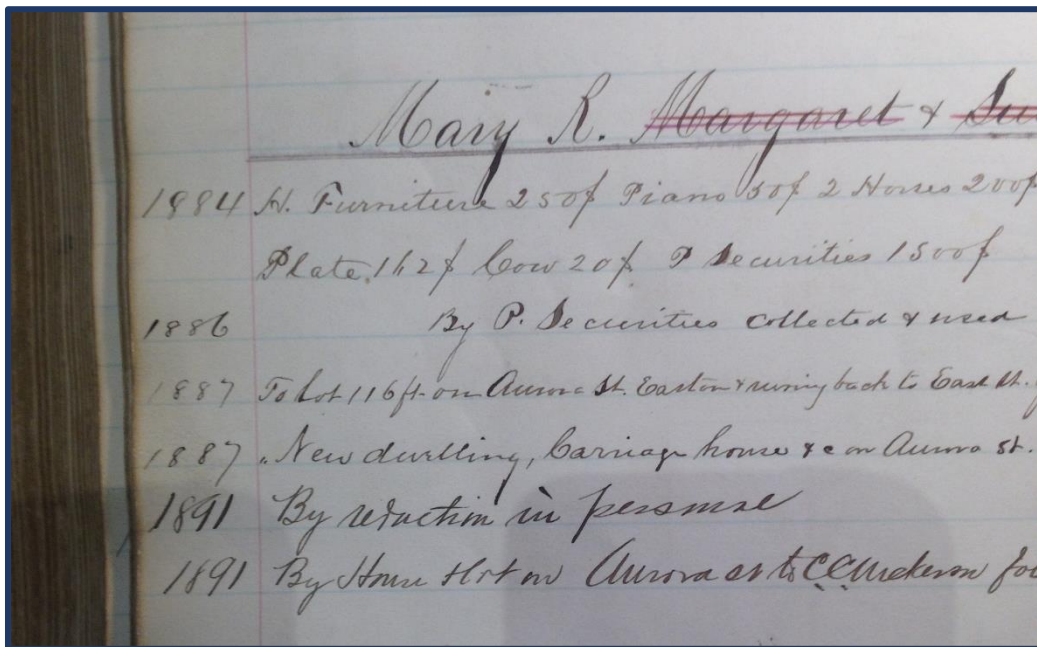 Mary R. Margaret &
1884 H. Furniture 250$ Piano 50$ 2 Horses 200$
Plate 162$ Cow 20$ P Securities 1500$
1886 By P. Securities collected & used
1887 To Lot 116ft on Aurora St. Easton & runing back to East St.
1887 " New dwelling, Carriage house &c on Aurora St.
1891 By reduction in personal
1891 By House & Lot on Aurora St to